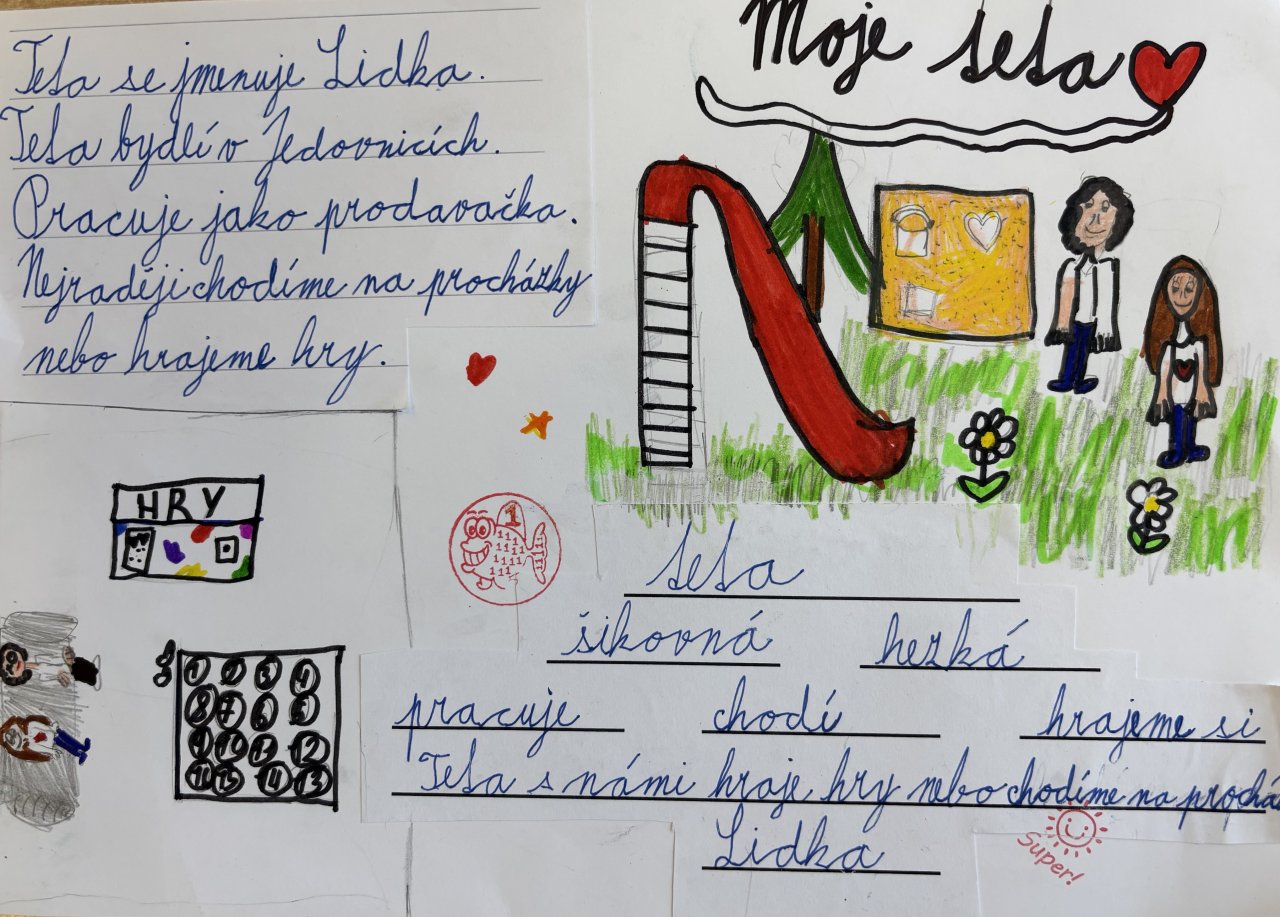 Moje teta
Teta se jmenuje Lidka.
Teta bydlí v Jedovnicích.
Pracuje jako prodavačka.
Nejraději chodíme na procházky
nebo hrajeme hry.
HRY
1 2 3 4
8 7 6 5
9 10 11 12
1
1111
1111
1111
111
teta
šikovná hezká
pracuje chodí hrajeme si
Teta s námi hraje hry nebo chodíme na prochá
Lidka
Super!